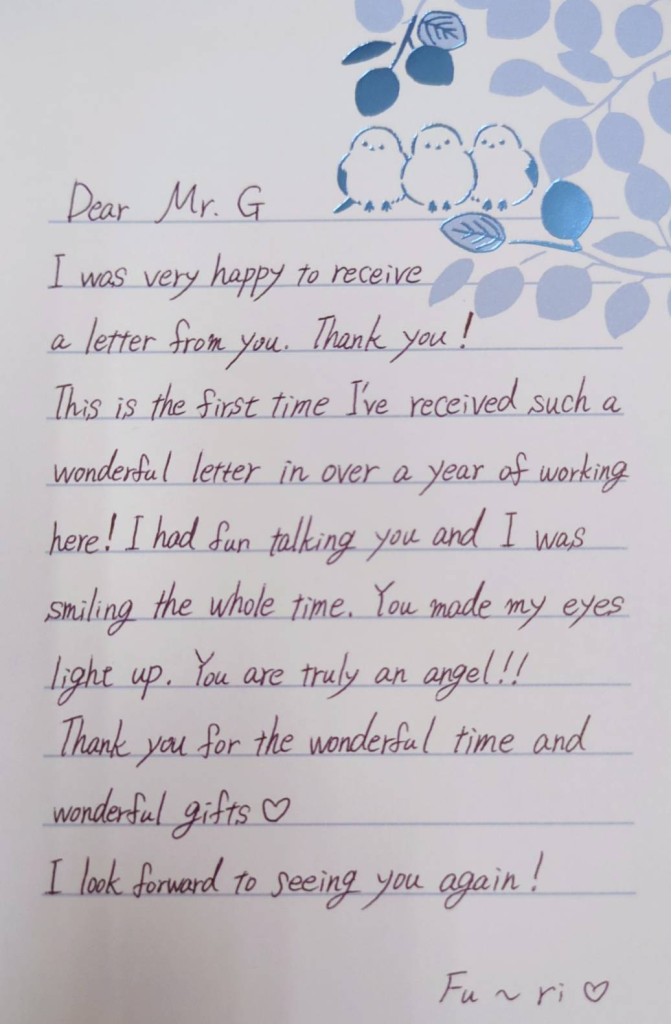 Dear Mr. G
I was very happy to receive
a letter from you. Thank you!
This is the first time I've received such a
wonderful letter in over a year of working
here! I had fun talking you and I was
smiling the whole time. You made my eyes
light up. You are truly an angel!!
Thank you for the wonderful time and
wonderful gifts ♡
I look forward to seeing you again!
Fu ~ ri ♡